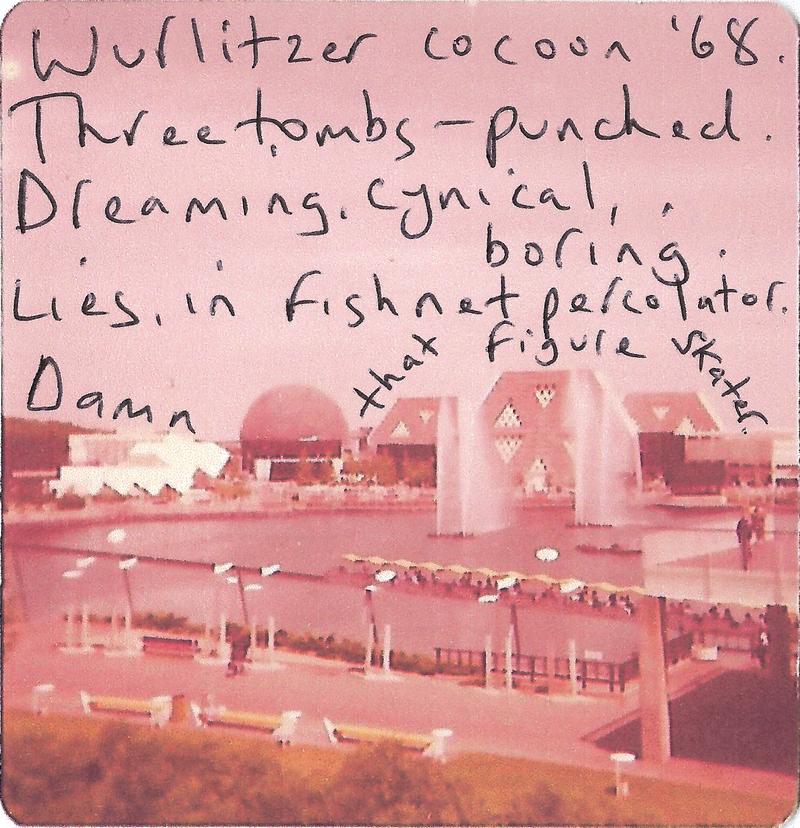 Wurlitzer cocoon '68.
Three tombs-punched.
Dreaming. Cynical, .
boring.
Lies, in fishnet percolator.
Damn that figure skater.